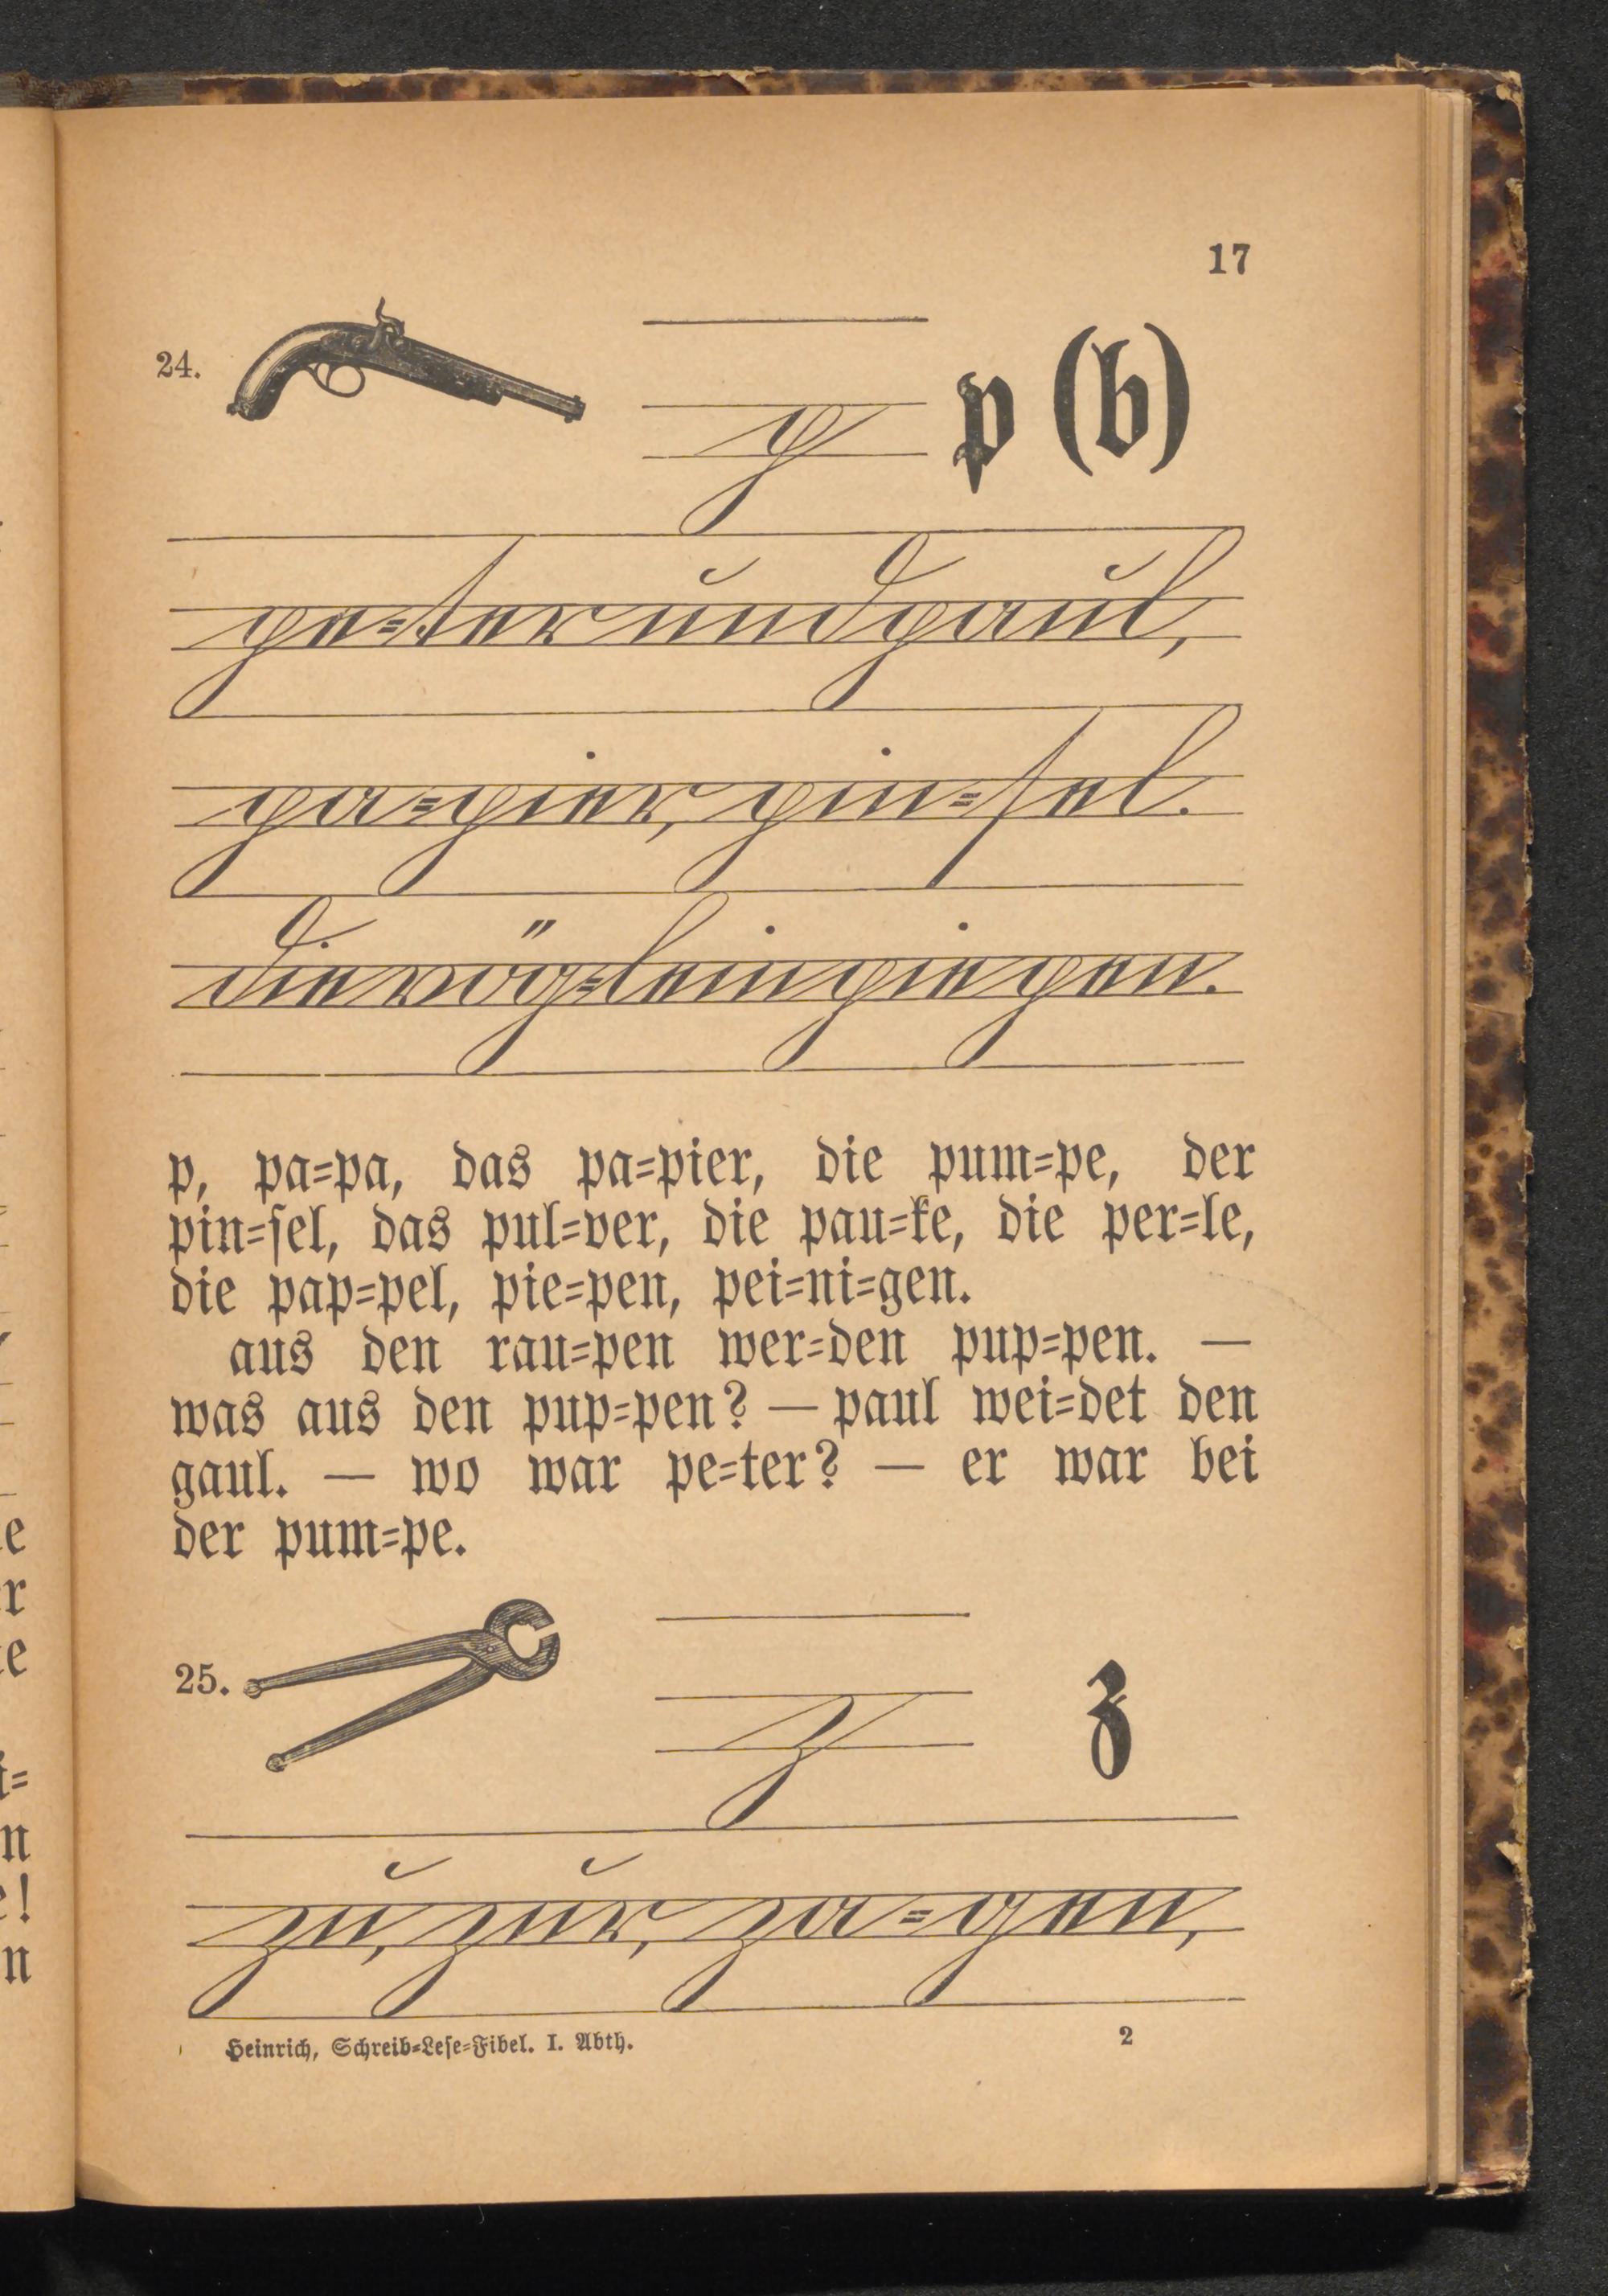 17
24. p p (b)
pe=ter und paul,
pa=pier, pin=sel.
die vög=lein piepen.
p, pa=pa, das pa=pier, die pum=pe, der
pin=ſel, das pul=ver, die pau=ke, die per=le,
die pap=pel, pie=pen, pei=ni=gen.
aus den rau=pen wer=den pup=pen. —
was aus den pup=pen? — paul wei=det den
gaul. — wo war pe=ter? — er war bei
der pum=pe.
25. z z
zu, zur, za=gen,
Heinrich, Schreib=Leſe=Fibel. I. Abth. 2